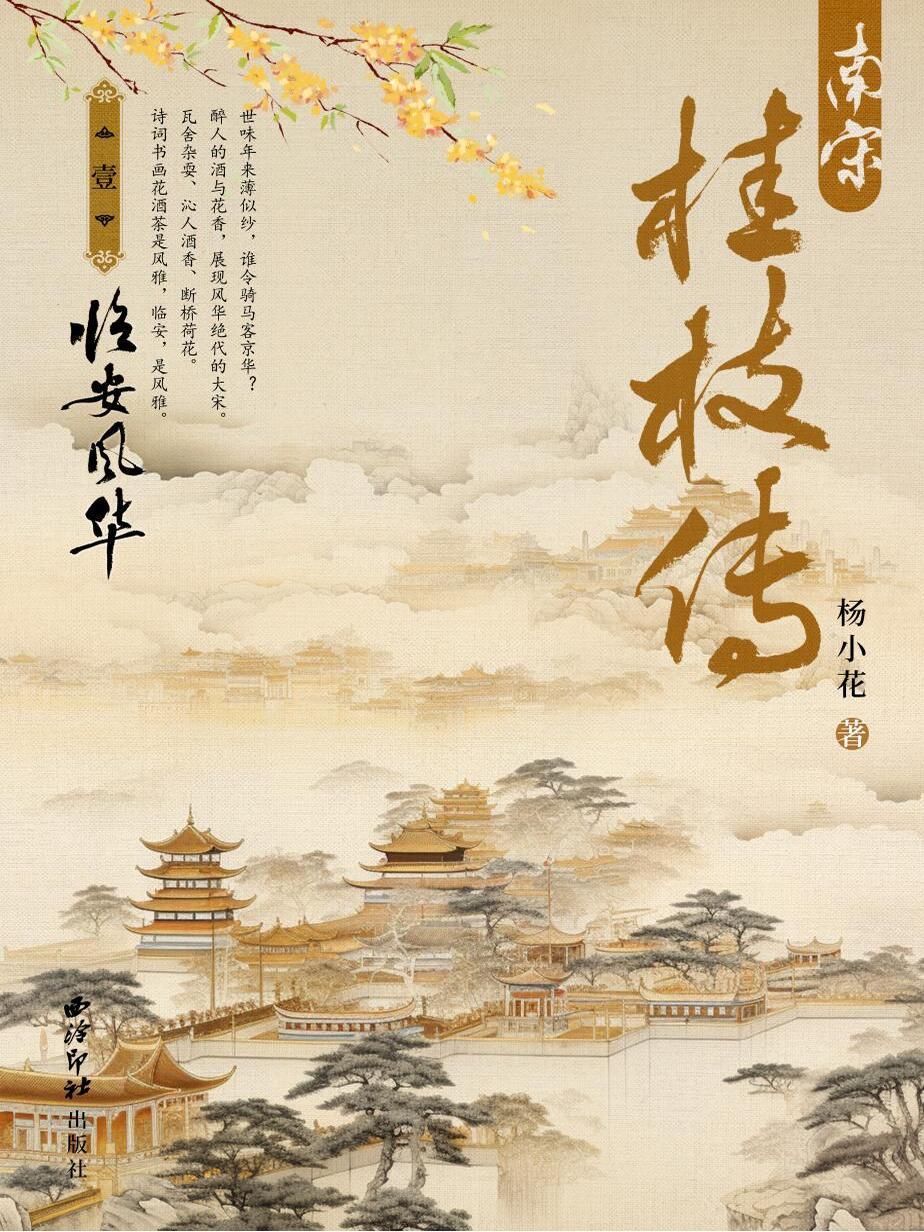 南宋
桂枝传
杨小花
著
世味年来薄似纱，谁令骑马客京华？
醉人的酒与花香，展现风华绝代的大宋。
瓦舍杂耍、沁人酒香、断桥荷花。
诗词书画花酒茶是风雅，临安，是风雅。
壹
临安风华
西泠印社
出版社